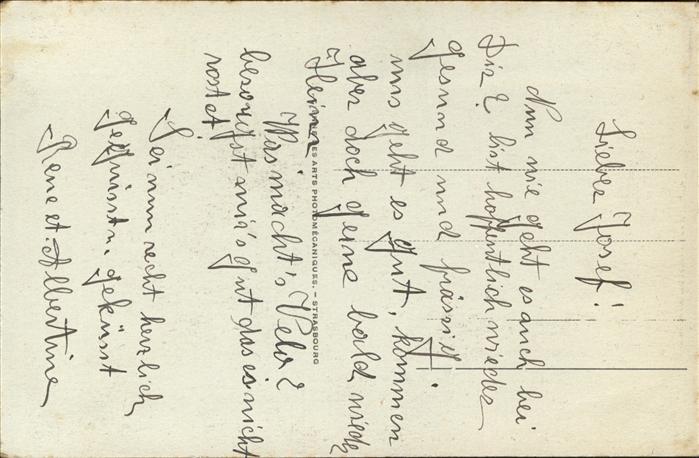 Lieber Josef!
Nun wie geht es auch bei
Dir? bist hoffentlich wieder
gesund und frässig.
uns geht es gut, kommen
aber doch gerne bald wiede
Heim.
Was macht's Velo?
besorgst mir's gut das es nicht
rostet.
Sei nun recht herzlich
gegrüsst u. geküsst
Rene et Albertine
ES ARTS PHOTOMÉCANIQUES. — STRASBOURG